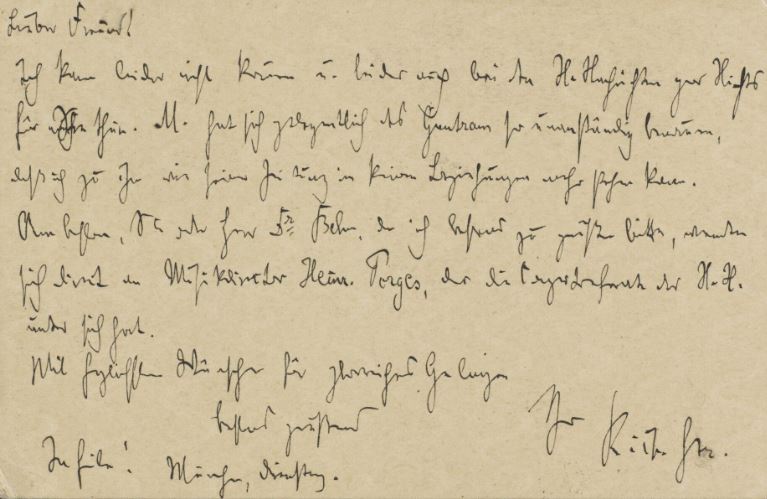 Lieber Freund!
Ich kann leider nicht kommen u. leider auch bei den N. Nachrichten gar Nichts
für thun. M. hat sich gelegentlich des Guntram so unanständig benommen,
daß ich zu ihm wie seiner Zeitung in keinen Beziehungen mehr stehen kann.
Am besten, Sie oder Herr Dr Behn, den ich bestens zu grüßen bitte, wenden
sich direct an Musikdirector Heinr. Porges, der die Tagesreferate der N. N.
unter sich hat.
Mit herzlichsten Wünschen für glorreiches Gelingen
bestens grüßend
Ihr Rich. Str.
In Eile! München, Dienstag.